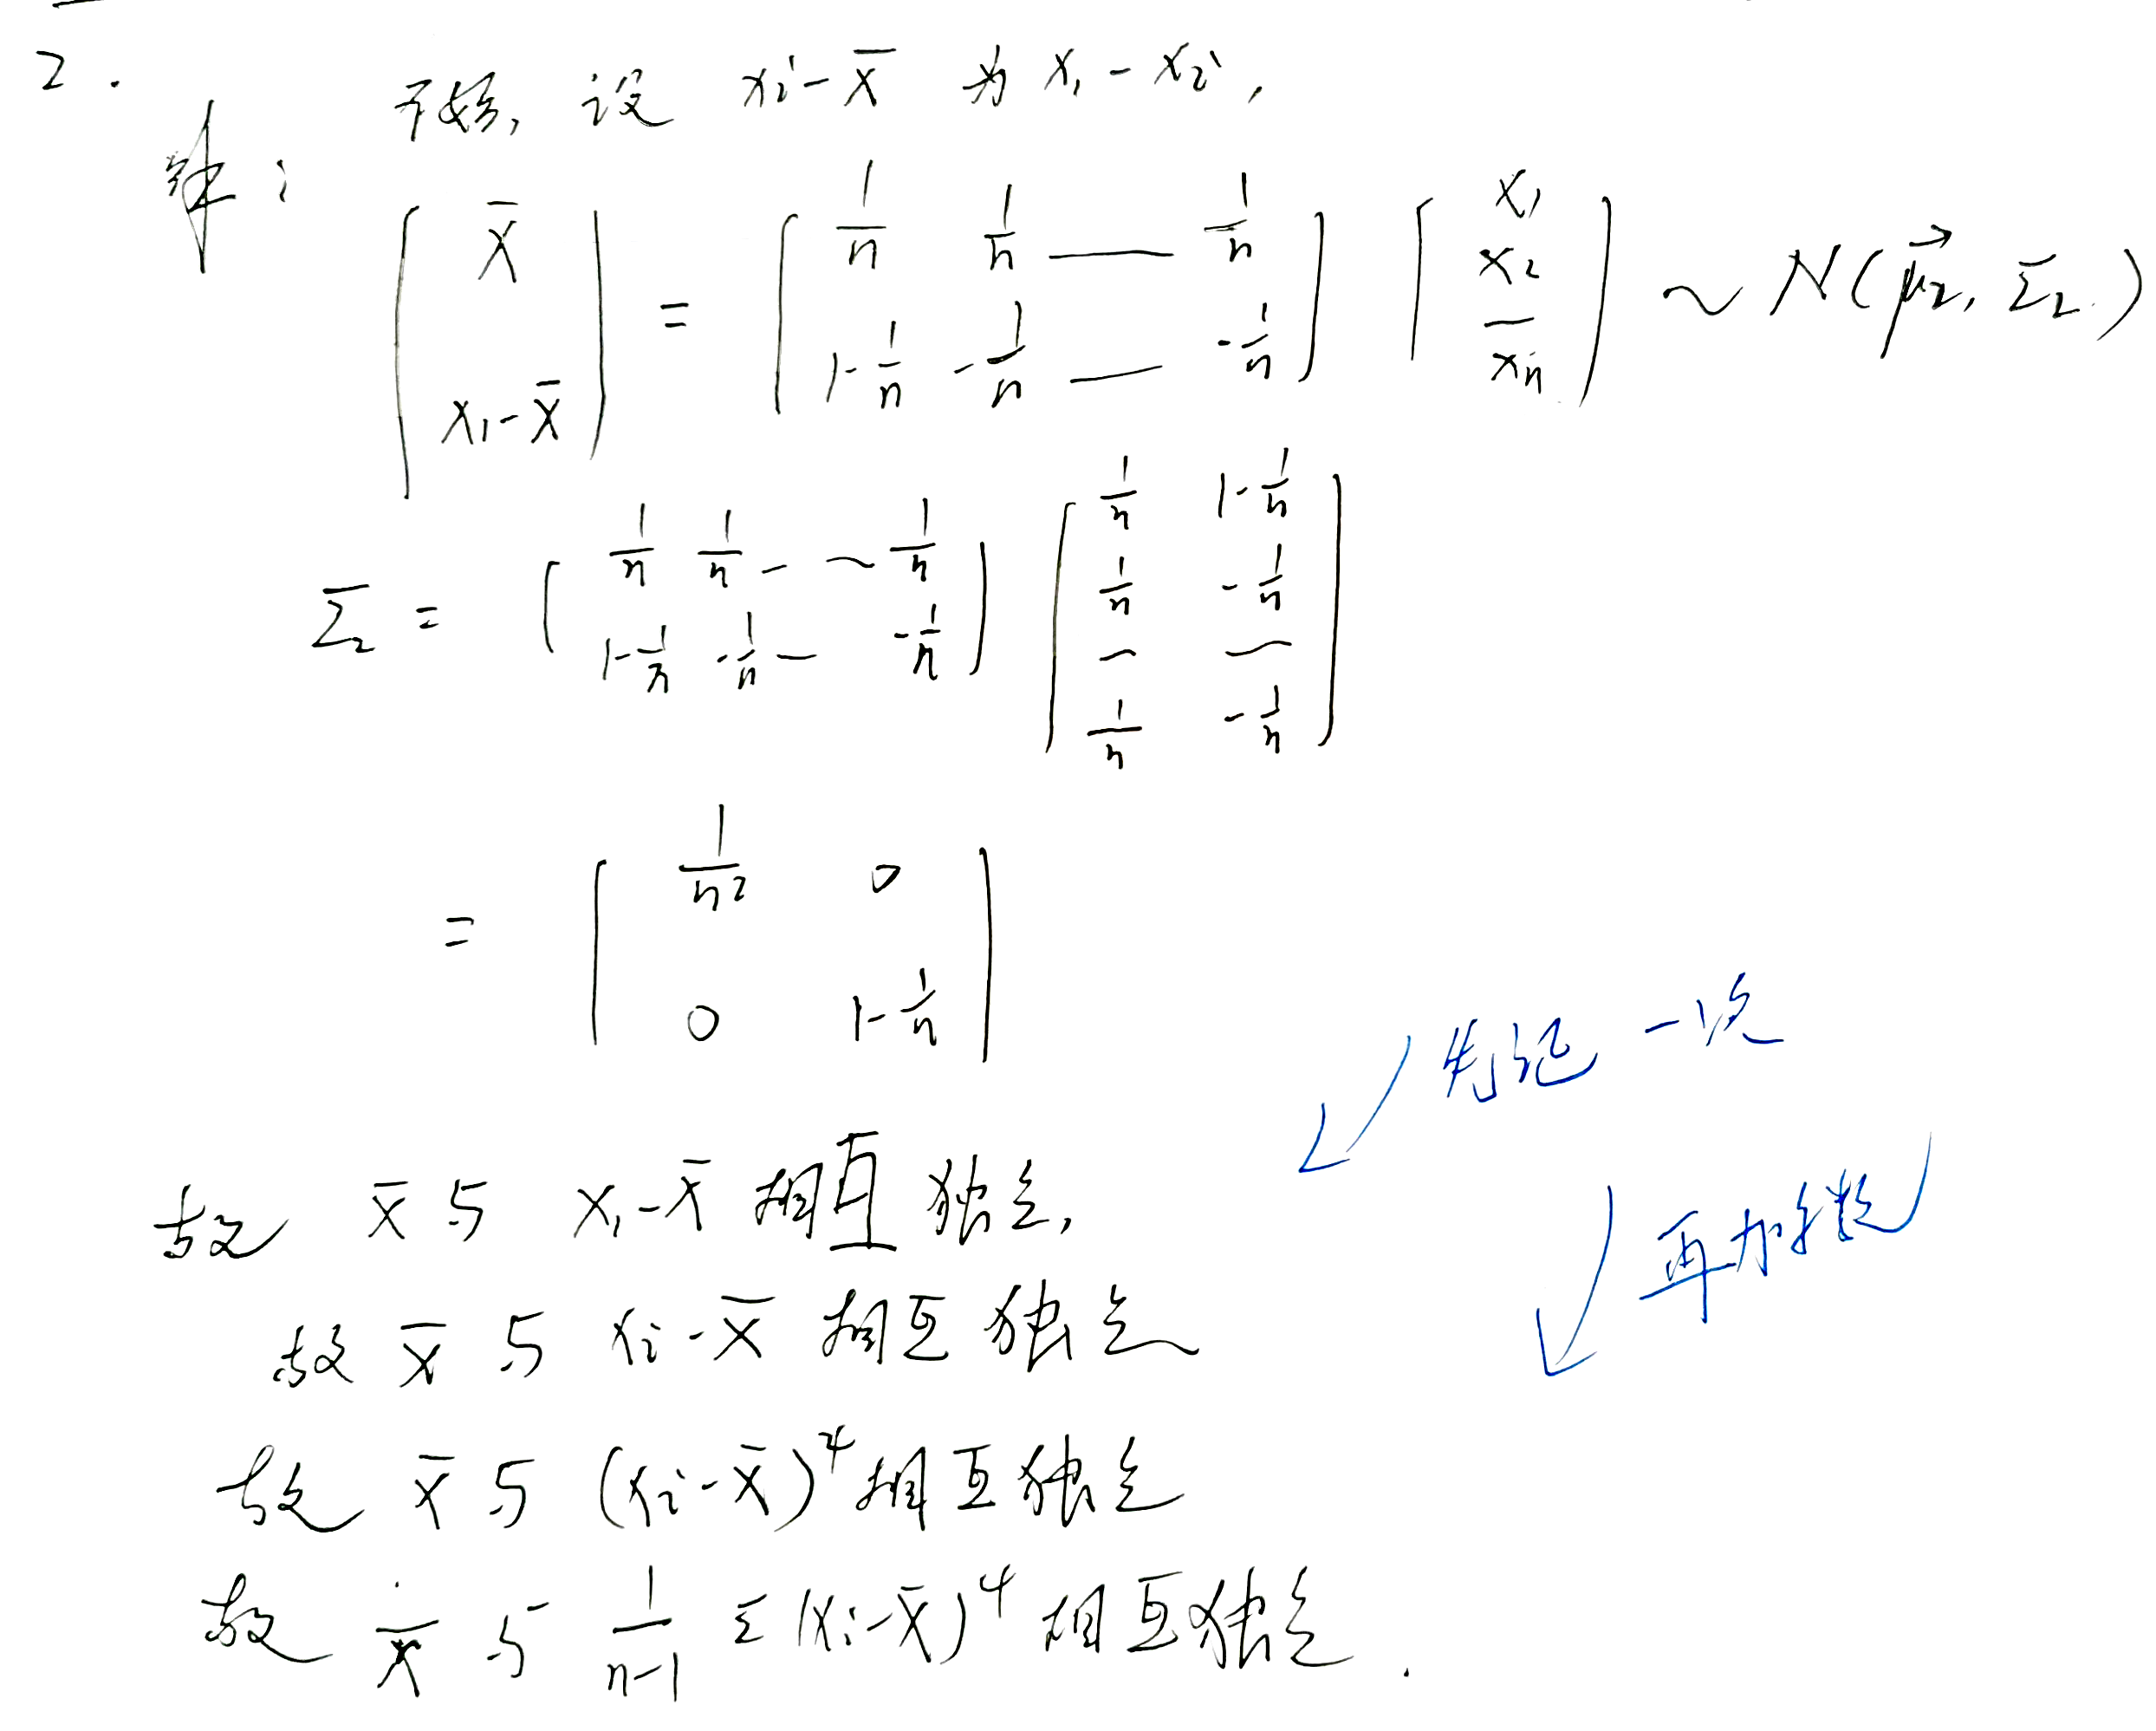 2. 不妨, 设 xi-x̄ 为 x₁-x̄,
解:
[x̄; x₁-x̄] = [1/n 1/n — 1/n; 1-1/n -1/n — -1/n] [x₁; x₂; —; xn] ~ N(μ⃗₂, Σ₂)
Σ₂ = [1/n 1/n - ~ 1/n; 1-1/n -1/n — -1/n] [1/n 1-1/n; 1/n -1/n; — —; 1/n -1/n]
= [1/n² 0; 0 1-1/n]
先记一次
故 x̄ 与 x₁-x̄ 相互独立,
再加
故 x̄ 与 xi-x̄ 相互独立
故 x̄ 与 (xi-x̄)⁴ 相互独立
故 x̄ 与 1/(n-1) Σ(xi-x̄)⁴ 相互独立.